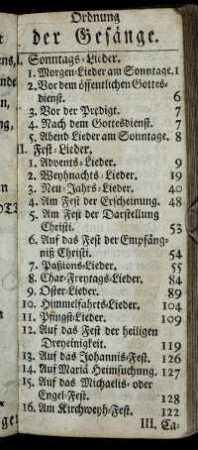 Ordnung
der Gesänge.
I. Sonntags-Lieder.
1. Morgen-Lieder am Sonntage. 1
2. Vor dem öffentlichen Gottes-
dienst. 6
3. Vor der Predigt. 7
4. Nach dem Gottesdienst. 7
5. Abend Lieder am Sonntage. 8
II. Fest-Lieder.
1. Advents-Lieder. 9
2. Weyhnachts-Lieder. 19
3. Neu-Jahrs-Lieder. 40
4. Am Fest der Erscheinung. 48
5. Am Fest der Darstellung
Christi. 53
6. Auf das Fest der Empfäng-
niß Christi. 54
7. Paßions-Lieder. 55
8. Char-Freytags-Lieder. 84
9. Oster-Lieder. 89
10. Himmelfahrts-Lieder. 104
11. Pfingst-Lieder. 109
12. Auf das Fest der heiligen
Dreyeinigkeit. 119
13. Auf das Johannis-Fest. 126
14. Auf Mariä Heimsuchung. 127
15. Auf das Michaelis- oder
Engel-Fest. 128
16. Am Kirchweyh-Fest. 122
III. Ca-